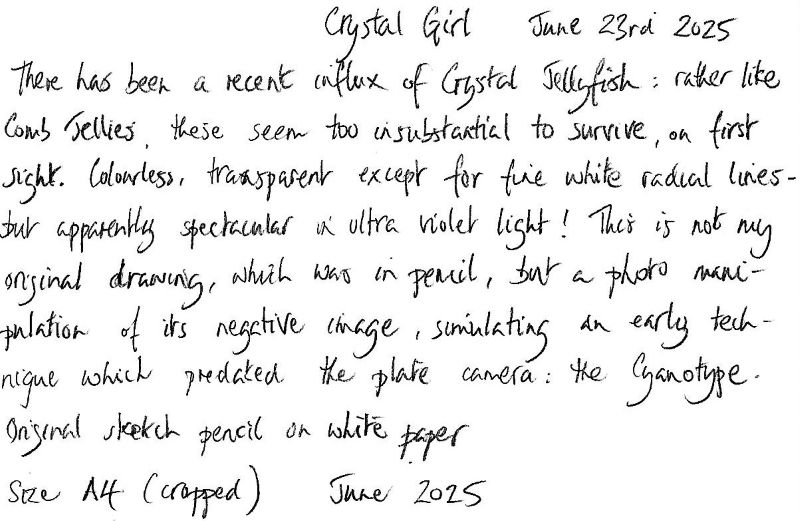 Crystal Girl June 23rd 2025
There has been a recent influx of Crystal Jellyfish: rather like
Comb Jellies, these seem too insubstantial to survive, on first
sight. Colourless, transparent except for fine white radial lines-
but apparently spectacular in ultra violet light! This is not my
original drawing, which was in pencil, but a photo mani-
pulation of its negative image, simulating an early tech-
nique which predated the plate camera: the Cyanotype.
Original sketch pencil on white paper
Size A4 (cropped) June 2025